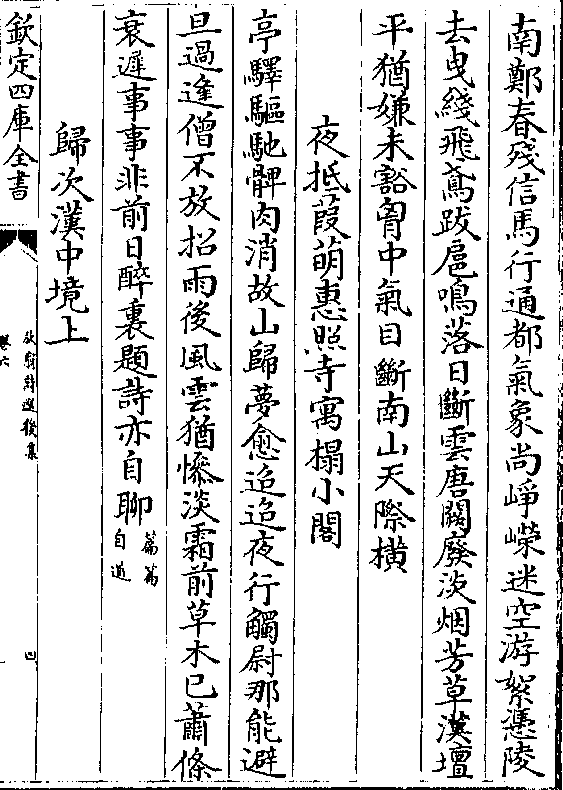 南鄭春殘信馬行通都氣象尚崢嶸迷空游絮憑陵
去曳綫飛鳶跋扈鳴落日斷雲唐闕廢淡烟芳草漢壇
平猶嫌未豁胷中氣目斷南山天際橫
夜抵葭萌惠照寺寓榻小閣
亭驛驅馳髀肉消故山歸夢愈迢迢夜行觸尉那能避
旦過逢僧不放招雨後風雲猶慘淡霜前草木已蕭條
衰遲事事非前日醉裏題詩亦自聊
篇篇
自
歸次漢中境上
欽定四庫全書
放翁詩選後集
卷六
四